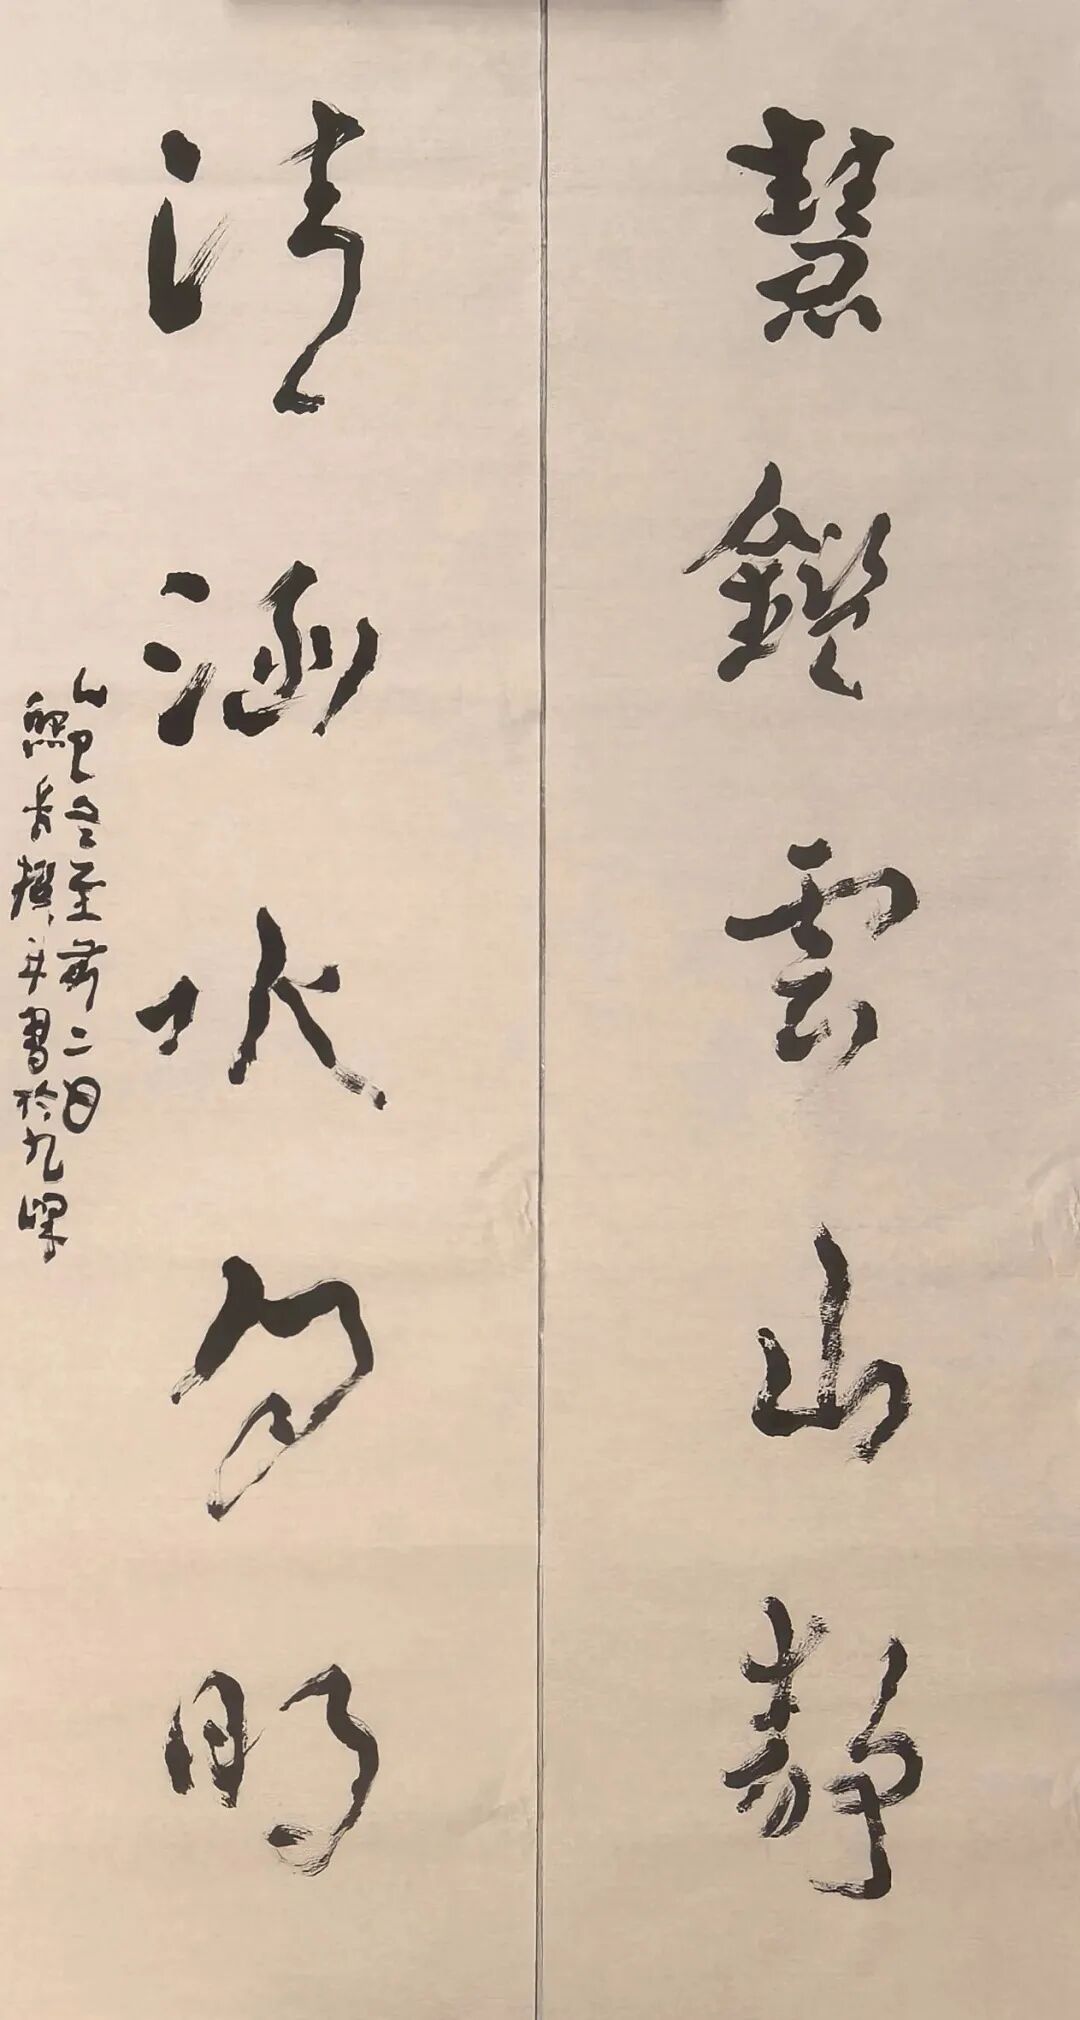 慧鑑雲山靜
清涵水月明
乙巳冬至前二日
撰并書於九